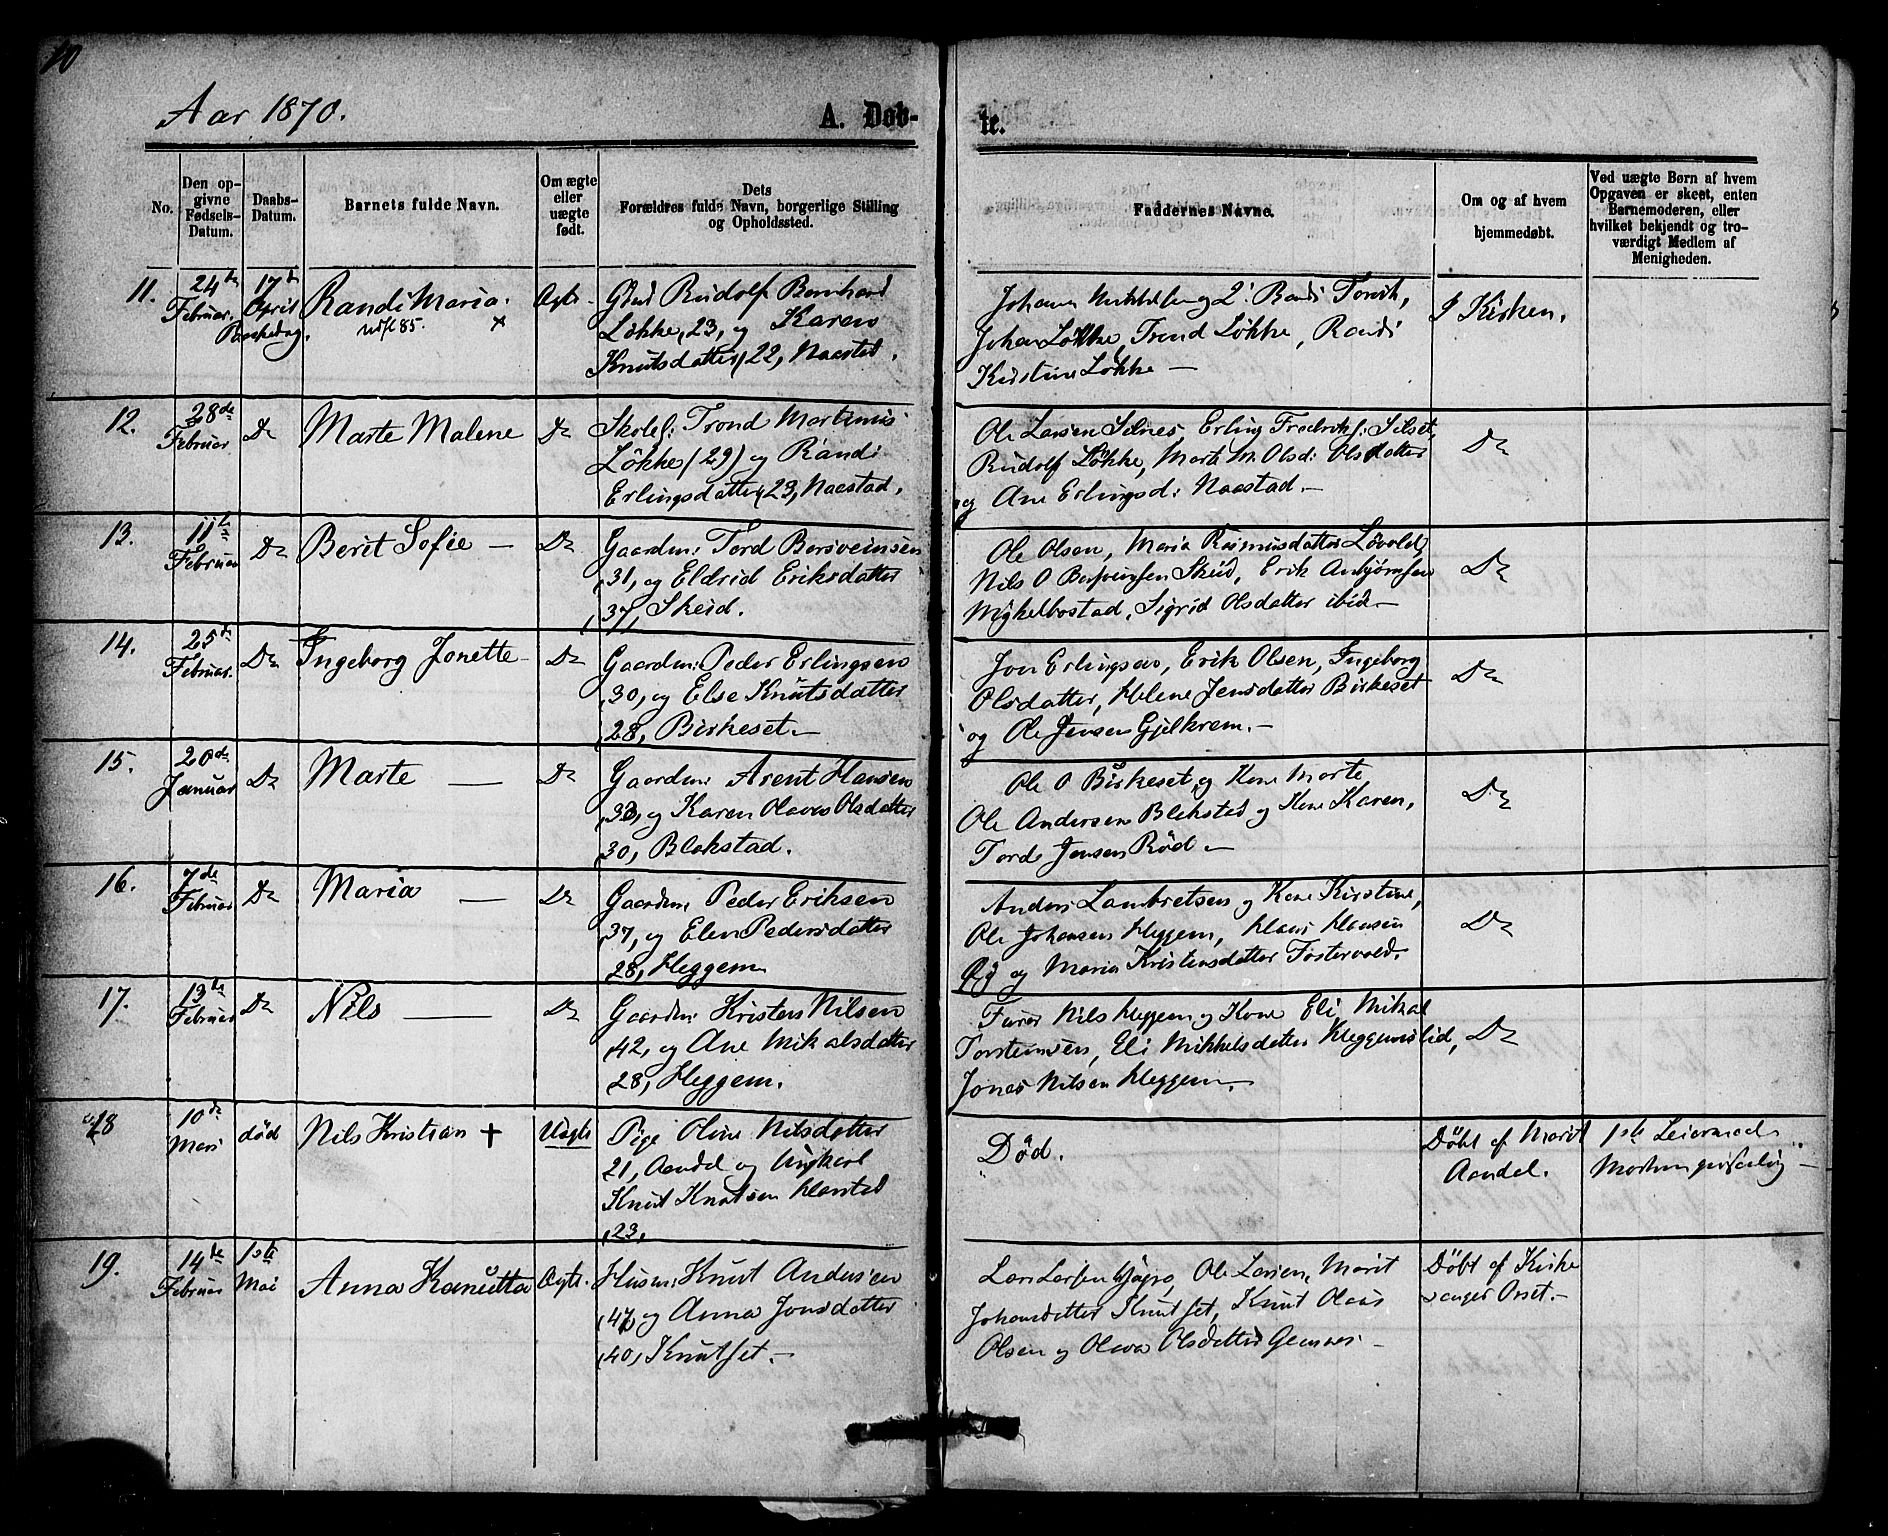 10
Aar 1870.
A. Døb-
te.
No.
Den op-
givne
Fødsels-
Datum.
Daabs-
Datum.
Barnets fulde Navn.
Om ægte
eller
uægte
født.
Dets
Forældres fulde Navn, borgerlige Stilling
og Opholdssted.
Faddernes Navne.
Om og af hvem
hjemmedøbt.
Ved uægte Børn af hvem
Opgaven er skeet, enten
Barnemoderen, eller
hvilket bekjendt og tro-
værdigt Medlem af
Menigheden.
11.
24de
Februar.
17de
April
Paaskedag.
Randi Maria.
Ægte.
Rudolf Bernhard
Løkke, 23, og Karen
Knutsdatter, 22, Naastad.
Johan Løkke, Trond Løkke, Randi
Kirstine Løkke —
I Kirken.
12.
28de
Februar
Do
Marte Malene
Do
Skolel: Trond Martinus
Løkke (29) og Randi
Erlingsdatter, 23, Naastad.
Ole Larsen Silnes, Erling Frederiks: Silset,
Rudolf Løkke, Marte M. Olsd: Olsdatter
og Ane Erlingsd: Naastad. —
Do
13.
11te
Februar
Do
Berit Sofie —
Do
Gaardm: Tord Bersveinsen
, 31, og Eldrid Eriksdatter
, 37, Skeid.
Ole Olsen, Maria Rasmusdatter Løvold,
Nils O Bersveinsen Skeid, Erik Anbjørnsen
Mykelbostad, Sigrid Olsdatter ibid —
Do
14.
25de
Februar.
Do
Ingeborg Jonette
Do
Gaardm: Peder Erlingsen
, 30, og Else Knutsdatter
, 28, Birkeset. —
Jon Erlingsen, Erik Olsen, Ingeborg
Olsdatter, Helene Jensdatter Birkeset
og Ole Jensen Gjelkrem. —
Do
15.
20de
Januar
Do
Marte —
Do
Gaardm: Arent Hansen
, 33, og Karen Olava Olsdatter
30, Blekstad.
Ole O Birkeset, og Kone Marte,
Ole Andersen Blekstad og Kone Karen,
Tord Jensen Rød. —
Do
16.
7de
Februar
Do
Maria —
Do
Gaardm: Peder Eriksen
, 37, og Elen Pedersdatter
28, Heggem
Anders Lambretsen og Kone Kirstine,
Ole Johansen Heggem, Hans Hansen
og Maria Kristensdatter Fostervold.
Do
17.
13de
Februar
Do
Nils —
Do
Gaardm: Kristen Nilsen
, 42, og Ane Mikalsdatter
28, Heggem.
Nils Heggem og Kone Eli, Mikal
Torsteinsen, Eli Mikkelsdatter Heggemslid,
Jonas Nilsen Heggem. —
Do
18
10de
Mars
død
Nils Kristian +
Uægte
Pige Oline Nilsdatter
21, Aandal og Ungkarl
Knut Knutsen Harstad
, 23,
Død.
Døbt af Marit
Aandal.
1ste Leiermaal
19.
14de
Februar
1ste
Mai
Anna Kanutta
Ægte.
Husm: Knut Andersen
, 47, og Anna Jonsdatter
, 40, Knutset. —
Lars Larsen, Ole Larsen, Marit
Johansdatter Knutset, Knut Olaus
Olsen og Olava Olsdatter —
Døbt af Kirke
sanger Orset. —